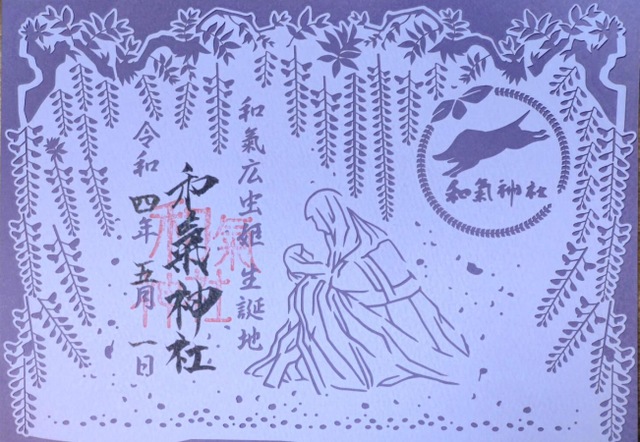 和氣神社
和氣広虫姫生誕地
和氣神社
和氣
神社
令和四年五月一日